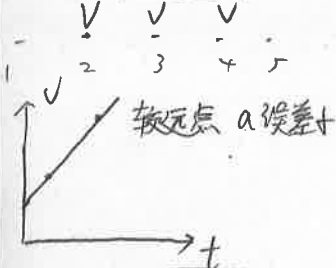 V V V
1 2 3 4 5
V
较远点 a误差小
t